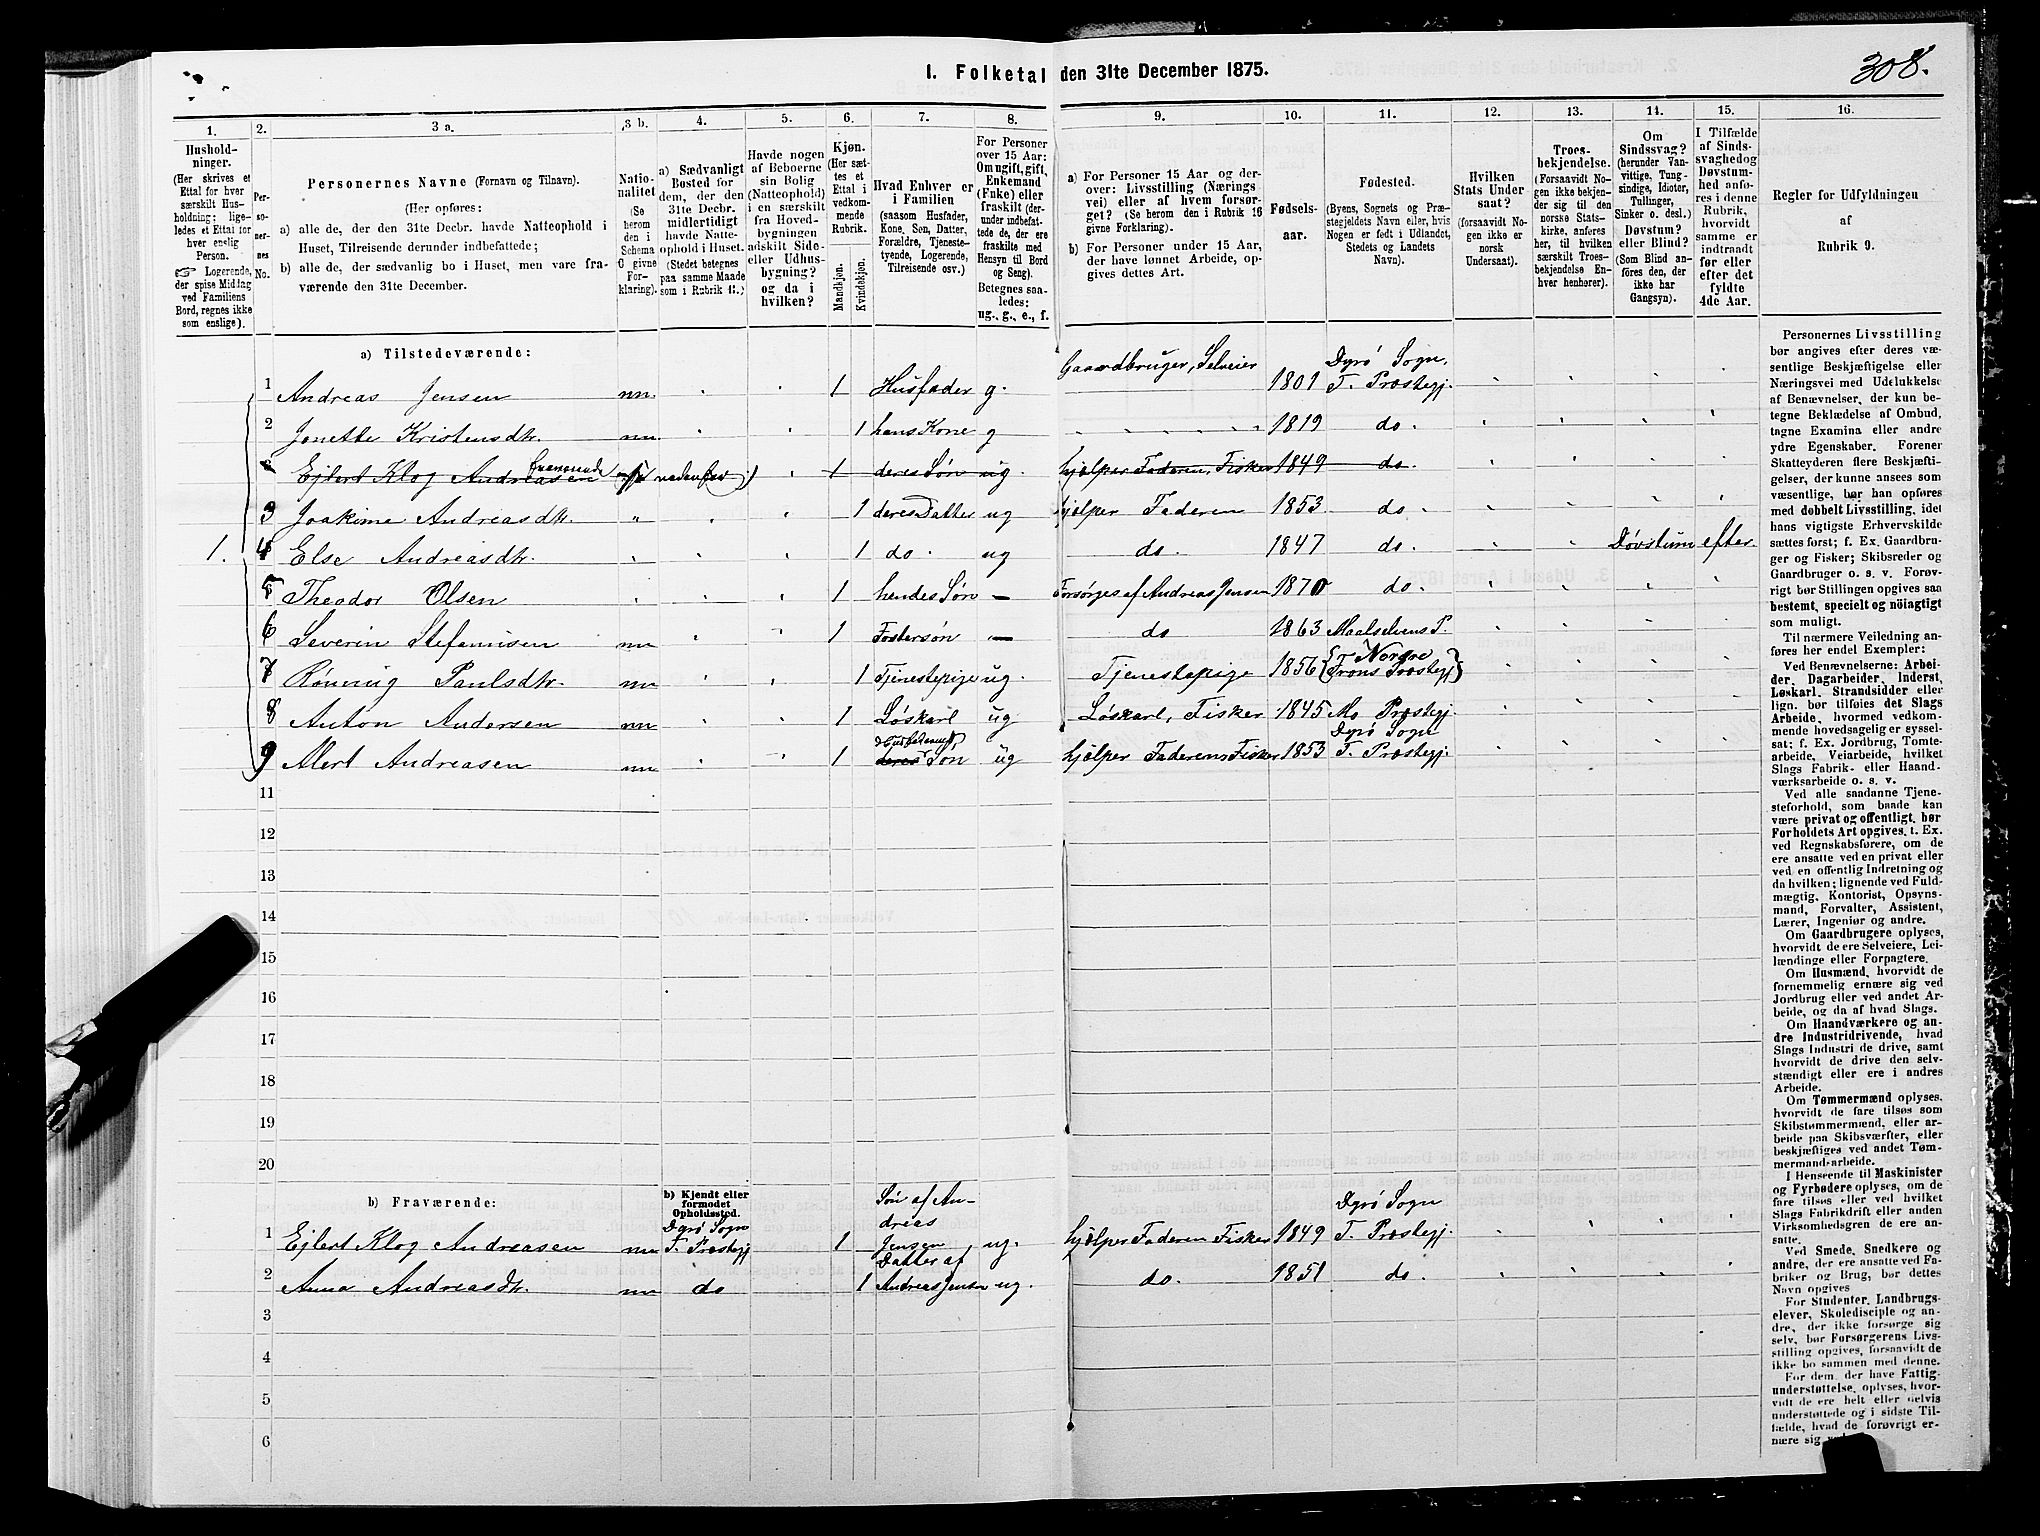 308.
I. Folketal den 31te December 1875.
1. 2. 3 a. 3 b. 4. 5. 6. 7. 8. 9. 10. 11. 12. 13. 14. 15. 16.
Hushold-
ninger.
(Her skrives et
Ettal for hver
særskilt Hus-
holdning; lige-
ledes et Ettal for
hver enslig
Person.
☞ Logerende,
der spise Middag
ved Familiens
Bord, regnes ikke
som enslige).
Per-
so-
ner-
nes
No.
Personernes Navne (Fornavn og Tilnavn).
(Her opføres:
a) alle de, der den 31te Decbr. havde Natteophold i
Huset, Tilreisende derunder indbefattede;
b) alle de, der sædvanlig bo i Huset, men vare fra-
værende den 31te December.
Natio-
nalitet
(Se
herom
den i
Schema
C givne
For-
klaring).
a) Sædvanligt
Bosted for
dem, der den
31te Decbr.
midlertidigt
havde Natte-
ophold i Huset.
(Stedet betegnes
paa samme Maade
som i Rubrik 11.)
Havde nogen
af Beboerne
sin Bolig
(Natteophold)
i en særskilt
fra Hoved-
bygningen
adskilt Side-
eller Udhus-
bygning?
og da i
hvilken?
Kjøn.
(Her sæt-
tes et
Ettal i
vedkom-
mende
Rubrik.
Mandkjøn.
Kvindekjøn.
Hvad Enhver er
i Familien
(saasom Husfader,
Kone, Søn, Datter,
Forældre, Tjeneste-
tyende, Logerende,
Tilreisende osv.)
For Personer
over 15 Aar:
Om ugift, gift,
Enkemand
(Enke) eller
fraskilt (der-
under indbefat-
tede de, der ere
fraskilte med
Hensyn til Bord
og Seng).
Betegnes saa-
ledes:
ug., g., e., f.
a) For Personer 15 Aar og der-
over: Livsstilling (Nærings
vei) eller af hvem forsør-
get? (Se herom den i Rubrik 16
givne Forklaring).
b) For Personer under 15 Aar,
der have lønnet Arbeide, op-
gives dettes Art.
Fødsels-
aar.
Fødested.
(Byens, Sognets og Præ-
stegjeldets Navn eller, hvis
Nogen er født i Udlandet,
Stedets og Landets
Navn).
Hvilken
Stats Under
saat?
(forsaavidt No-
gen ikke er
norsk
Undersaat).
Troes-
bekjendelse.
(Forsaavidt No-
gen ikke bekjen-
der sig til den
norske Stats-
kirke, anføres
her, til hvilken
særskilt Troes-
bekjendelse En-
hver henhører).
Om
Sindssvag?
(herunder Van-
vittige, Tung-
sindige, Idioter,
Tullinger,
Sinker o. desl.)
Døvstum?
eller Blind?
(Som Blind an-
føres den, der
ikke har
Gangsyn).
I Tilfælde
af Sinds-
svaghed og
Døvstum-
hed anfø-
res i denne
Rubrik,
hvorvidt
samme er
indtraadt
før eller
efter det
fyldte
4de Aar.
Regler for Udfyldningen
af
Rubrik 9.
a) Tilstedeværende:
1 Andreas Jensen nn. 1 Husfader g. Gaardbruger, Selveier 1801 Dyrø Sogn, T. Præstegj.
2 Jonette Kristensdtr. nn. 1 hans Kone g 1819 do.
Ejlert Klog Andreasen fraværende (se nedenfor) 1 deres Søn ug hjælper Faderen, Fisker 1849 do.
3 Joakime Andreasdtr. 1 deres Datter ug hjælper Faderen 1853 do
1. 4 Else Andreasdtr. 1 do. ug do. 1847 do. Døvstum efter.
5 Theodor Olsen 1 hendes Søn — Forsørges af Andreas Jensen 1870 do.
6 Severin Stefannisen nn 1 Fostersøn — do 1863 Maalselvens P.
7 Rønnug Paulsdtr. nn 1 Tjenestepige ug. Tjenestepige 1856 Trons Præstegj
8 Anton Andersen nn 1 Løskarl ug Løskarl, Fisker 1845 Mo Præstegj.
9 Alert Andreasen nn 1 deres Søn ug hjælper Faderen, Fisker 1853 Dyrø Sogn T. Præstegj.
11
12
13
14
15
16
17
18
19
20
b) Fraværende:
b) Kjendt eller
formodet
Opholdssted.
1 Ejlert Klog Andreasen nn Dyrø Sogn T. Præstegj 1 Søn af Andreas Jensen ug. hjælper Faderen Fisker 1849 Dyrø Sogn T. Præstegj.
2 Anna Andreasdtr. nn do 1 Datter af Andreas Jensen ug. do. 1851 do.
3
4
5
6
Personernes Livsstilling
bør angives efter deres væ-
sentlige Beskjæftigelse eller
Næringsvei med Udelukkelse
af Benævnelser, der kun be-
tegne Beklædelse af Ombud,
tagne Examina eller andre
ydre Egenskaber. Forener
Skatteyderen flere Beskjæfti-
gelser, der kunne ansees som
væsentlige, bør han opføres
med dobbelt Livsstilling, idet
hans vigtigste Erhvervskilde
sættes først; f. Ex. Gaardbru-
ger og Fisker; Skibsreder og
Gaardbruger o. s. v. Forøv-
rigt bør Stillingen opgives saa
bestemt, specielt og nöiagtigt
som muligt.
Til nærmere Veiledning an-
føres her endel Exempler:
Ved Benævnelserne: Arbei-
der, Dagarbeider, Inderst,
Løskarl, Strandsidder eller
lign. bør tilføies det Slags
Arbeide, hvormed vedkom-
mende hovedsagelig er syssel-
sat; f. Ex. Jordbrug, Tomte-
arbeide, Veiarbeide, hvilket
Slags Fabrik- eller Haand-
værksarbeide o. s. v.
Ved alle saadanne Tjene-
steforhold, som baade kan
være privat og offentligt, bør
Forholdets Art opgives, t. Ex.
ved Regnskabsførere, om de
ere ansatte ved en privat eller
ved en offentlig Indretning og
da hvilken; lignende ved Fuld-
mægtig, Kontorist, Opsyns-
mand, Forvalter, Assistent,
Lærer, Ingeniør og andre.
Om Gaardbrugere oplyses,
hvorvidt de ere Selveiere, Lei-
lændinge eller Forpagtere.
Om Husmænd, hvorvidt de
fornemmelig ernære sig ved
Jordbrug eller ved andet Ar-
beide, og da af hvad Slags.
Om Haandværkere og an-
dre Industridrivende, hvad
Slags Industri de drive, samt
hvorvidt de drive den selv-
stændigt eller ere i andres
Arbeide.
Om Tømmermænd oplyses,
hvorvidt de fare tilsøs som
Skibstømmermænd, eller ar-
beide paa Skibsværfter, eller
beskjæftiges ved andet Tøm-
mermandsarbeide.
I Henseende til Maskinister
og Fyrbødere oplyses, om de
fare tilsøs eller ved hvilket
Slags Fabrikdrift eller anden
Virksomhedsgren de ere an-
satte.
Ved Smede, Snedkere og
andre, der ere ansatte ved Fa-
briker og Brug, bør dettes
Navn opgives
For Studenter, Landbrugs-
elever, Skoledisciple og an-
dre, der ikke forsørge sig
selv, bør Forsørgerens Livs-
stilling opgives, forsaavidt de
ikke bo sammen med denne.
For dem, der have Fattig-
understøttelse, oplyses, hvor-
vidt de ere helt eller delvis
understøttede og i sidste Til-
fælde, hvad de forøvrigt er-
nære sig